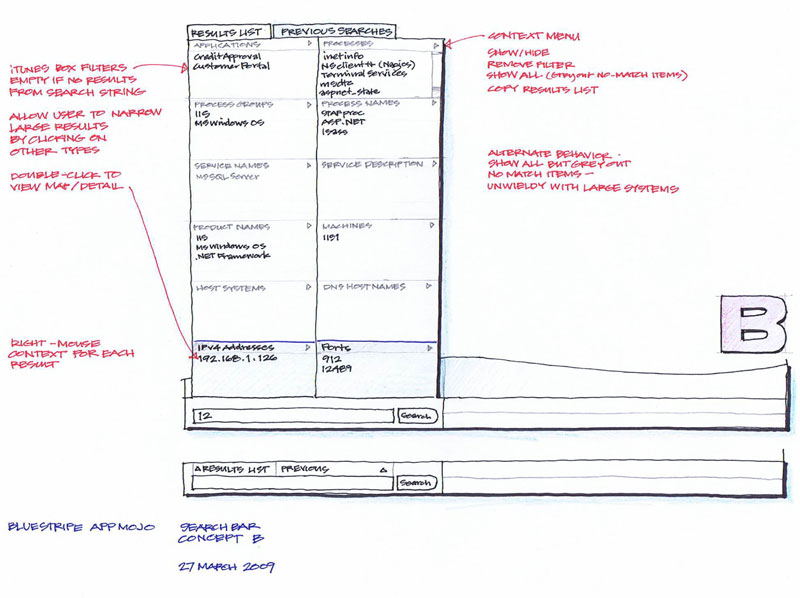 RESULTS LIST
PREVIOUS SEARCHES
APPLICATIONS
Credit Approval
Customer Portal
PROCESSES
inetinfo
NSclient++ (Nagios)
Terminal Services
msdtc
aspnet_state
PROCESS GROUPS
IIS
MS Windows OS
PROCESS NAMES
STAFproc
ASP.NET
lsass
SERVICE NAMES
MSSQL Server
SERVICE DESCRIPTION
PRODUCT NAMES
IIS
MS Windows OS
.NET Framework
MACHINES
IIS1
HOST SYSTEMS
DNS HOST NAMES
IPv4 Addresses
192.168.1.126
Ports
912
12489
12
Search
RESULTS LIST
PREVIOUS
Search
iTUNES BOX FILTERS
EMPTY IF NO RESULTS
FROM SEARCH STRING
ALLOW USER TO NARROW
LARGE RESULTS
BY CLICKING ON
OTHER TYPES
DOUBLE-CLICK TO
VIEW MAP/DETAIL
RIGHT-MOUSE
CONTEXT FOR EACH
RESULT
CONTEXT MENU
SHOW/HIDE
REMOVE FILTER
SHOW ALL (Grey out NO-MATCH ITEMS)
COPY RESULTS LIST
ALTERNATE BEHAVIOR -
SHOW ALL BUT GREY OUT
NO MATCH ITEMS -
UNWIELDY WITH LARGE SYSTEMS
B
BLUESTRIPE APPMOJO
SEARCH BAR
CONCEPT B
27 MARCH 2009